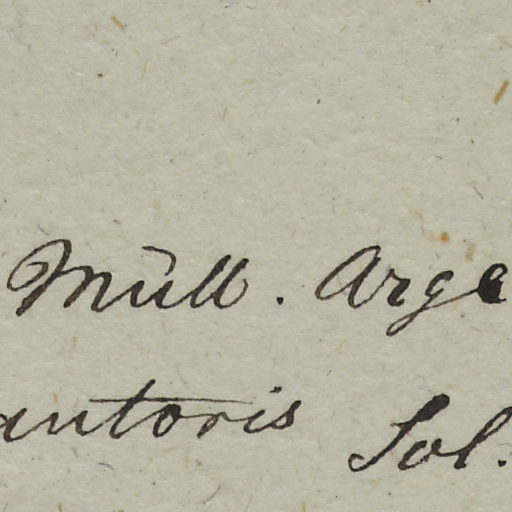 Müll. Arge
autoris Sol.